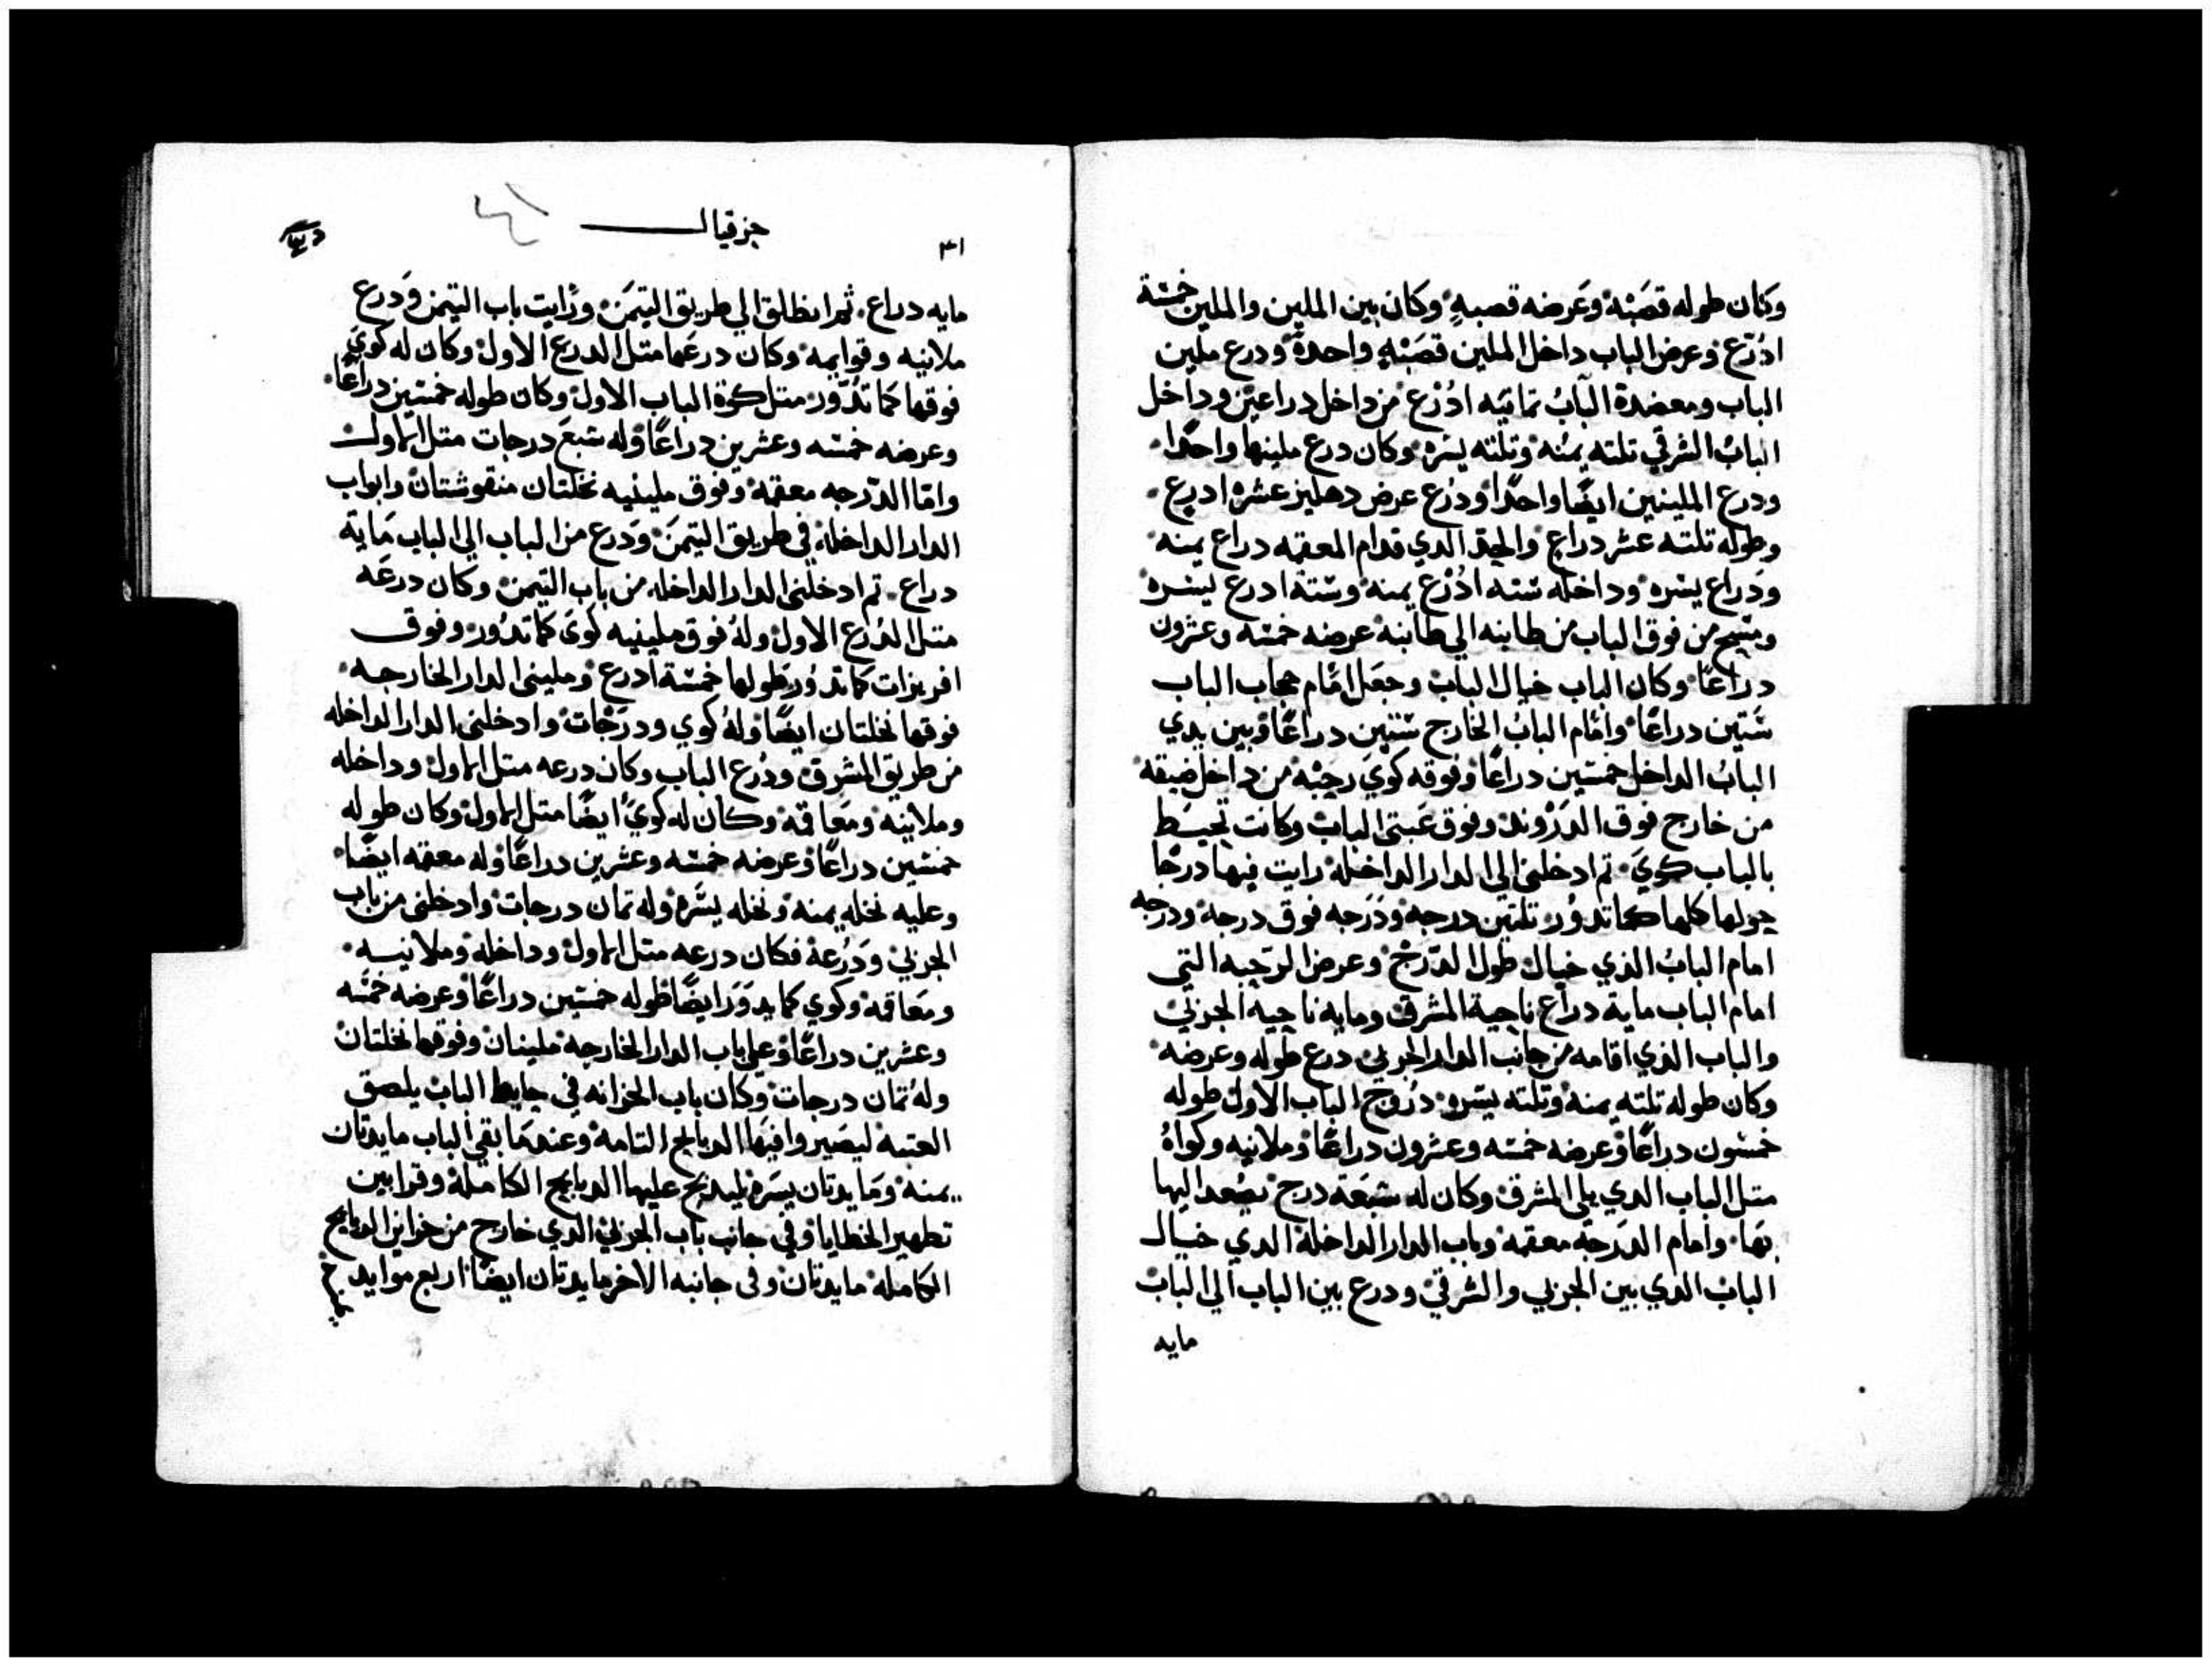 وكان طوله قصبه وعرضه قصبه وكان بين الملين والملين خمسة
ادرع وعرض الباب داخل الملين قصبه واحدة ودرع ملين
الباب ومعضدة الباب تمانيه ادرع من داخل دراعين وداخل
الباب الشرقي تلته يمنه وتلته يسره وكان درع ملينها واحدا
ودرع الملينين ايضا واحدا ودرع عرض دهليز عشره ادرع
وطوله تلتة عشر دراع والحد الدي قدام المعقمه دراع يمنه
ودراع يسره وداخله سته ادرع يمنه وستة ادرع يسره
ومسح من فوق الباب من طابنه الي طابنه عرضه خمسه وعشرون
دراعا وكان الباب خيال الباب وجعل امام حجاب الباب
ستين دراعا وامام الباب الخارج ستين دراعا وبين يدي
الباب الداخل خمسين دراعا وفوقه كوي رحبه من داخل ضيقه
من خارج فوق الدروند وفوق عتبتي الباب وكانت تحيط
بالباب كوي تم ادخلني الي الدار الداخله رايت فيها درجا
حولها كلها كما تدور تلتين درجه ودرجه فوق درجه ودرجه
امام الباب الذي خيال طول الدرج وعرض الرحبه التي
امام الباب ماية دراع ناحية المشرق ومايه ناحية الجربي
والباب الذي اقامه من جانب الدار الجربي درع طوله وعرضه
وكان طوله تلته يمنه وتلته يسره دروج الباب الاول طوله
خمسون دراعا وعرضه خمسه وعشرون دراعا وملانيه وكواه
متل الباب الدي يلي المشرق وكان له سبعة درج يصعد اليها
بها وامام الدرجه معقمه وباب الدار الداخلة الدي خيال
الباب الدي بين الجربي والشرقي ودرع بين الباب الي الباب
مايه
٣١ حزقيال
مايه دراع ثم انطلق الي طريق التيمن ورايت باب التيمن ودرع
ملانيه وقوايمه وكان درعها متل الدرع الاول وكان له كوي
فوقها كما تدور متل كوة الباب الاول وكان طوله خمسين دراعا
وعرضه خمسه وعشرين دراعا وله سبع درجات متل الاول
واما الدرجه معقمه وفوق ملينيه نخلتان منقوشتان وابواب
الدار الداخله في طريق التيمن ودرع من الباب الي الباب مايه
دراع تم ادخلني الدار الداخله من باب التيمن وكان درعه
متل الدرع الاول وله فوق ملينيه كوي كما تدور وفوق
افريزات كما تدور طولها خمسة ادرع وملينى الدار الخارجه
فوقها نخلتان ايضا وله كوي ودرجات وادخلني الدار الداخله
من طريق المشرق ودرع الباب وكان درعه متل الاول وداخله
وملانيه ومعاقمه وكان له كوي ايضا متل الاول وكان طوله
خمسين دراعا وعرضه خمسه وعشرين دراعا وله معقمه ايضا
وعليه نخله يمنه ونخله يسره وله تمان درجات وادخلني من باب
الجربي ودرعه فكان درعه متل الاول وداخله وملانيه
ومعاقمه وكوي كما يدور ايضا طوله خمسين دراعا وعرضه خمسه
وعشرين دراعا وعلي باب الدار الخارجه ملينان وفوقها نخلتان
وله تمان درجات وكان باب الخزانه في حايط الباب يلصق
العتبه ليصيروا فيها الدبايح التامه وعندما بقي الباب مايدتان
يمنه ومايدتان يسره ليدبح عليها الدبايح الكامله وقرابين
تطهير الخطايا وفي جانب باب الجربي الدي خارج من خزاين الدبايح
الكامله مايدتان وفي جانبه الاخر مايدتان ايضا اربع موايد